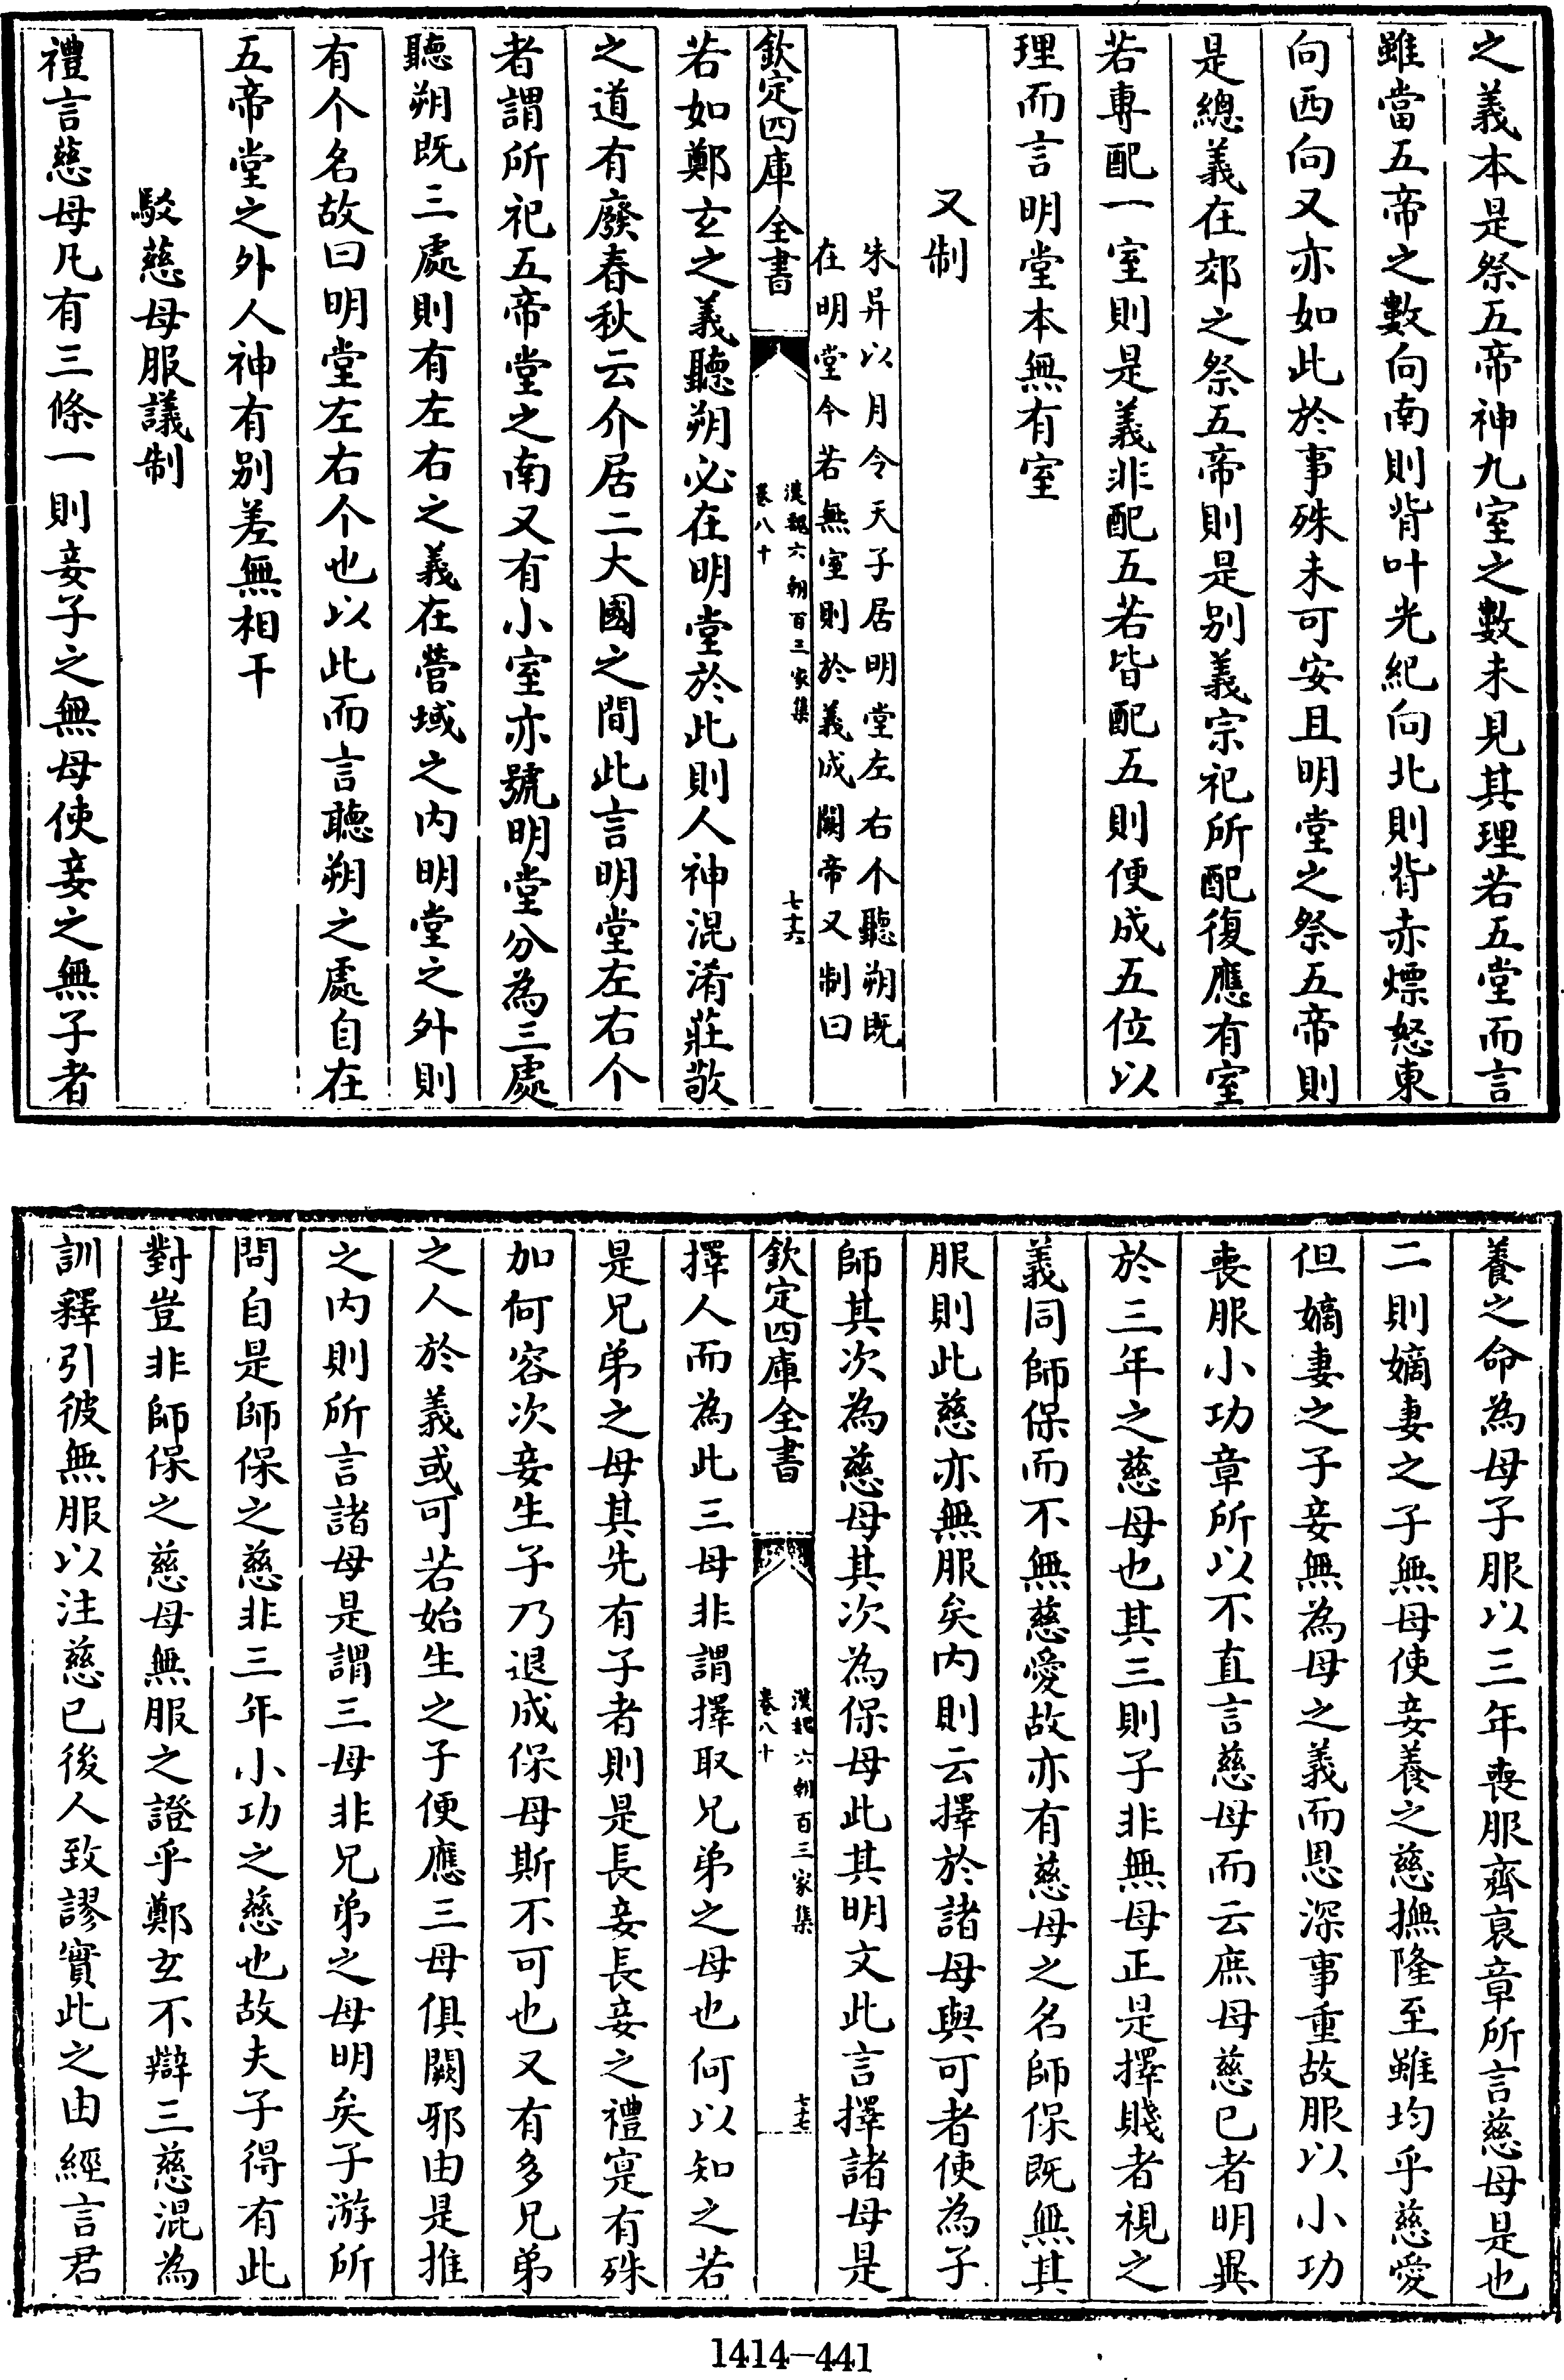 之義本是祭五帝神九室之數未見其理若五堂而言
雖當五帝之數向南則背叶光紀向北則背赤熛怒東
向西向又亦如此於事殊未可安且明堂之祭五帝則
是總義在郊之祭五帝則是别義宗祀所配復應有室
若專配一室則是義非配五若皆配五則便成五位以
理而言明堂本無有室
又制
朱异以月令天子居明堂左右个聽朔既
在明堂今若無室則於義成闕帝又制曰
欽定四庫全書
漢魏六朝百三家集
卷八十
七十六
若如鄭玄之義聽朔必在明堂於此則人神混淆莊敬
之道有廢春秋云介居二大國之間此言明堂左右个
者謂所祀五帝堂之南又有小室亦號明堂分為三處
聽朔既三處則有左右之義在營域之内明堂之外則
有个名故曰明堂左右个也以此而言聽朔之處自在
五帝堂之外人神有别差無相干
駮慈母服議制
禮言慈母凡有三條一則妾子之無母使妾之無子者
養之命為母子服以三年喪服齊衰章所言慈母是也
二則嫡妻之子無母使妾養之慈撫隆至雖均乎慈愛
但嫡妻之子妾無為母之義而恩深事重故服以小功
喪服小功章所以不直言慈母而云庶母慈已者明異
於三年之慈母也其三則子非無母正是擇賤者視之
義同師保而不無慈愛故亦有慈母之名師保既無其
服則此慈亦無服矣内則云擇於諸母與可者使為子
師其次為慈母其次為保母此其明文此言擇諸母是
欽定四庫全書
漢魏六朝百三家集
卷八十
七十七
擇人而為此三母非謂擇取兄弟之母也何以知之若
是兄弟之母其先有子者則是長妾長妾之禮寔有殊
加何容次妾生子乃退成保母斯不可也又有多兄弟
之人於義或可若始生之子便應三母俱闕邪由是推
之内則所言諸母是謂三母非兄弟之母明矣子游所
問自是師保之慈非三年小功之慈也故夫子得有此
對豈非師保之慈母無服之證乎鄭玄不辯三慈混為
訓釋引彼無服以注慈已後人致謬實此之由經言君
1414-441